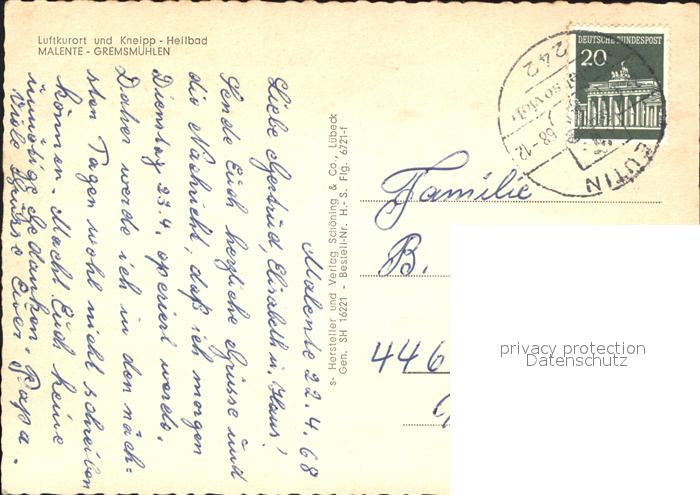 Luftkurort und Kneipp - Heilbad
MALENTE - GREMSMÜHLEN
Malente 22.4.68
Liebe Elisabeth u. Klaus!
Sende Euch herzliche Grüsse und
die Nachricht, daß ich morgen
Dienstag 23.4. operiert werde.
Daher werde ich in den näch=
sten Tagen wohl nicht schreiben
können. Macht Euch keine
unnötige Gedanken.
Viele Grüsse Euer Papa.
s- Hersteller und Verlag Schöning & Co., Lübeck
Gen. SH 16221 - Bestell-Nr. H.- S. Flg. 6721-f
DEUTSCHE BUNDESPOST
20
242
EUTIN
68-12
Familie
B.
446
privacy protection
Datenschutz